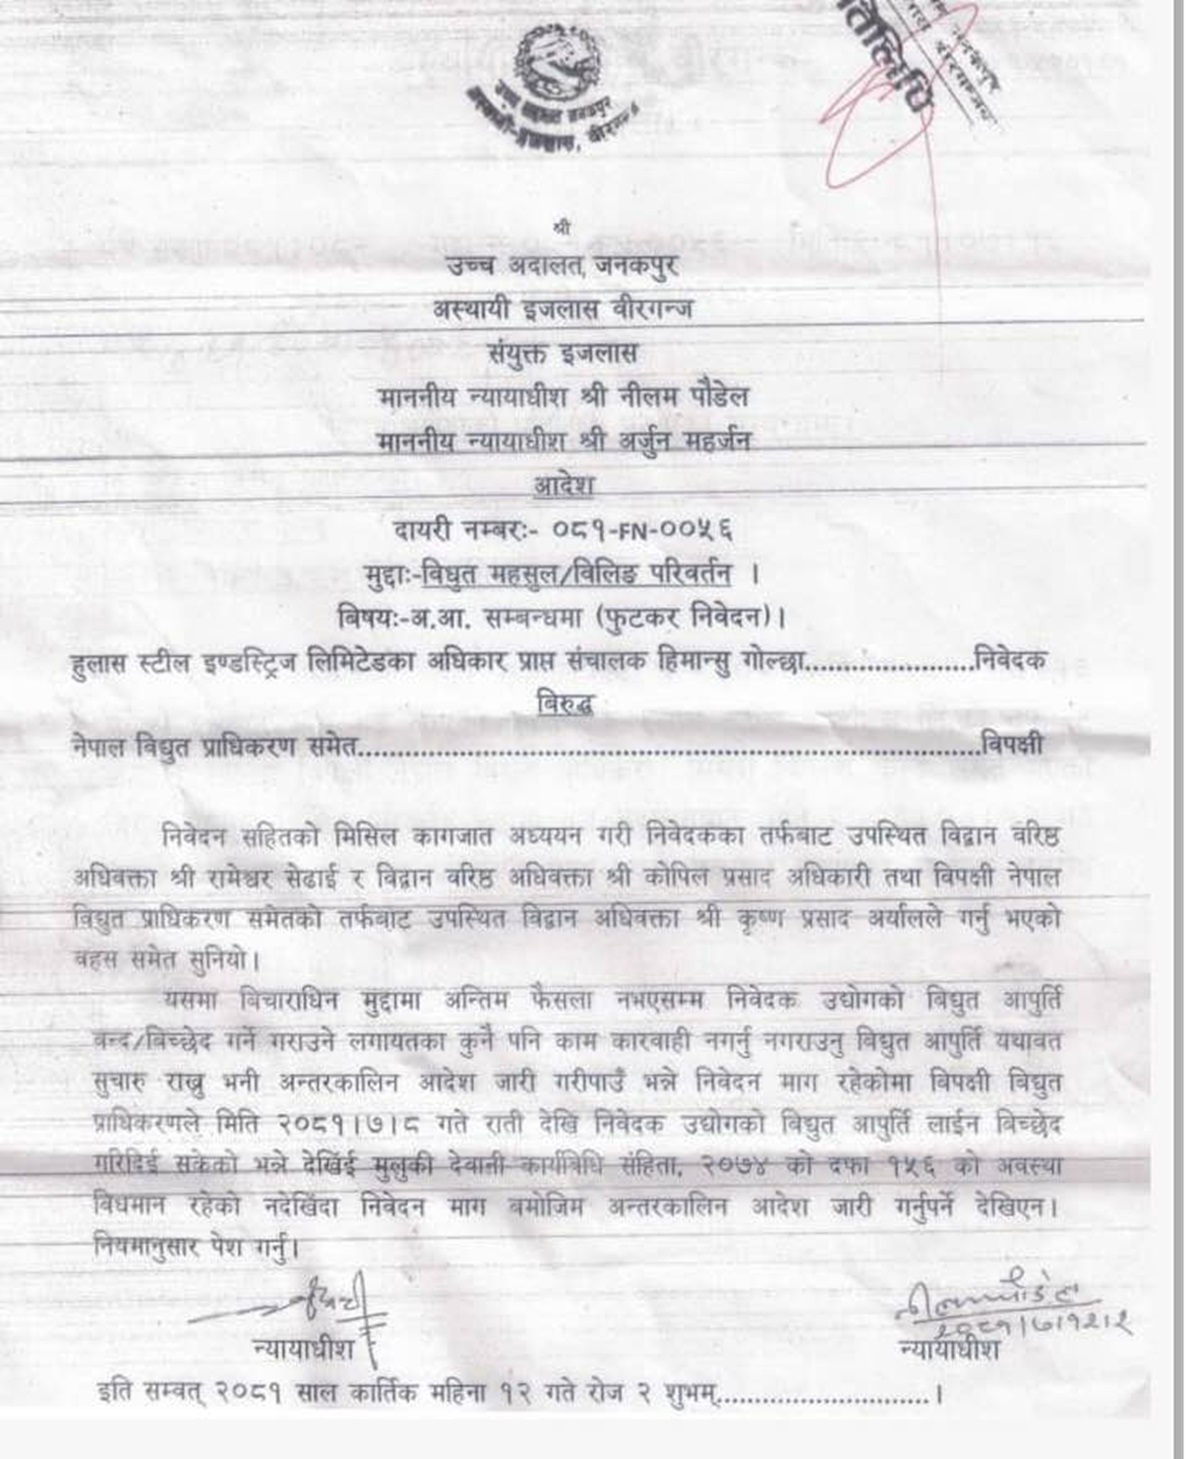 प्रतिलिपि
उच्च अदालत जनकपुर
अस्थायी-इजलास, वीरगन्ज
श्री
उच्च अदालत, जनकपुर
अस्थायी इजलास वीरगन्ज
संयुक्त इजलास
माननीय न्यायाधीश श्री नीलम पौडेल
माननीय न्यायाधीश श्री अर्जुन महर्जन
आदेश
दायरी नम्बरः- ०८१-FN-००५६
मुद्दाः-विधुत महसुल/विलिङ परिवर्तन ।
बिषयः-अ.आ. सम्बन्धमा (फुटकर निवेदन)।
हुलास स्टील इण्डस्ट्रिज लिमिटेडका अधिकार प्राप्त संचालक हिमान्सु गोल्छा.......................निवेदक
बिरुद्ध
नेपाल विद्युत प्राधिकरण समेत.....................................................................................विपक्षी
निवेदन सहितको मिसिल कागजात अध्ययन गरी निवेदकका तर्फबाट उपस्थित विद्वान वरिष्ठ
अधिवक्ता श्री रामेश्वर सेढाई र विद्वान वरिष्ठ अधिवक्ता श्री कोपिल प्रसाद अधिकारी तथा विपक्षी नेपाल
विद्युत प्राधिकरण समेतको तर्फबाट उपस्थित विद्वान अधिवक्ता श्री कृष्ण प्रसाद अर्यालले गर्नु भएको
वहस समेत सुनियो।
यसमा बिचाराधिन मुद्दामा अन्तिम फैसला नभएसम्म निवेदक उद्योगको विद्युत आपुर्ति
बन्द/बिच्छेद गर्ने गराउने लगायतका कुनै पनि काम कारवाही नगर्नु नगराउनु विद्युत आपुर्ति यथावत
सुचारु राख्नु भनी अन्तरकालिन आदेश जारी गरीपाउँ भन्ने निवेदन माग रहेकोमा विपक्षी विद्युत
प्राधिकरणले मिति २०८१।७।८ गते राती देखि निवेदक उद्योगको विद्युत आपुर्ति लाईन बिच्छेद
गरिदिई सकेको भन्ने देखिंई मुलुकी देवानी कार्यविधि संहिता, २०७४ को दफा १५६ को अवस्था
बिधमान रहेको नदेखिंदा निवेदन माग बमोजिम अन्तरकालिन आदेश जारी गर्नुपर्ने देखिएन।
नियमानुसार पेश गर्नु।
२०८१।७।१२।२
न्यायाधीश न्यायाधीश
इति सम्वत् २०८१ साल कार्तिक महिना १२ गते रोज २ शुभम्.............................।